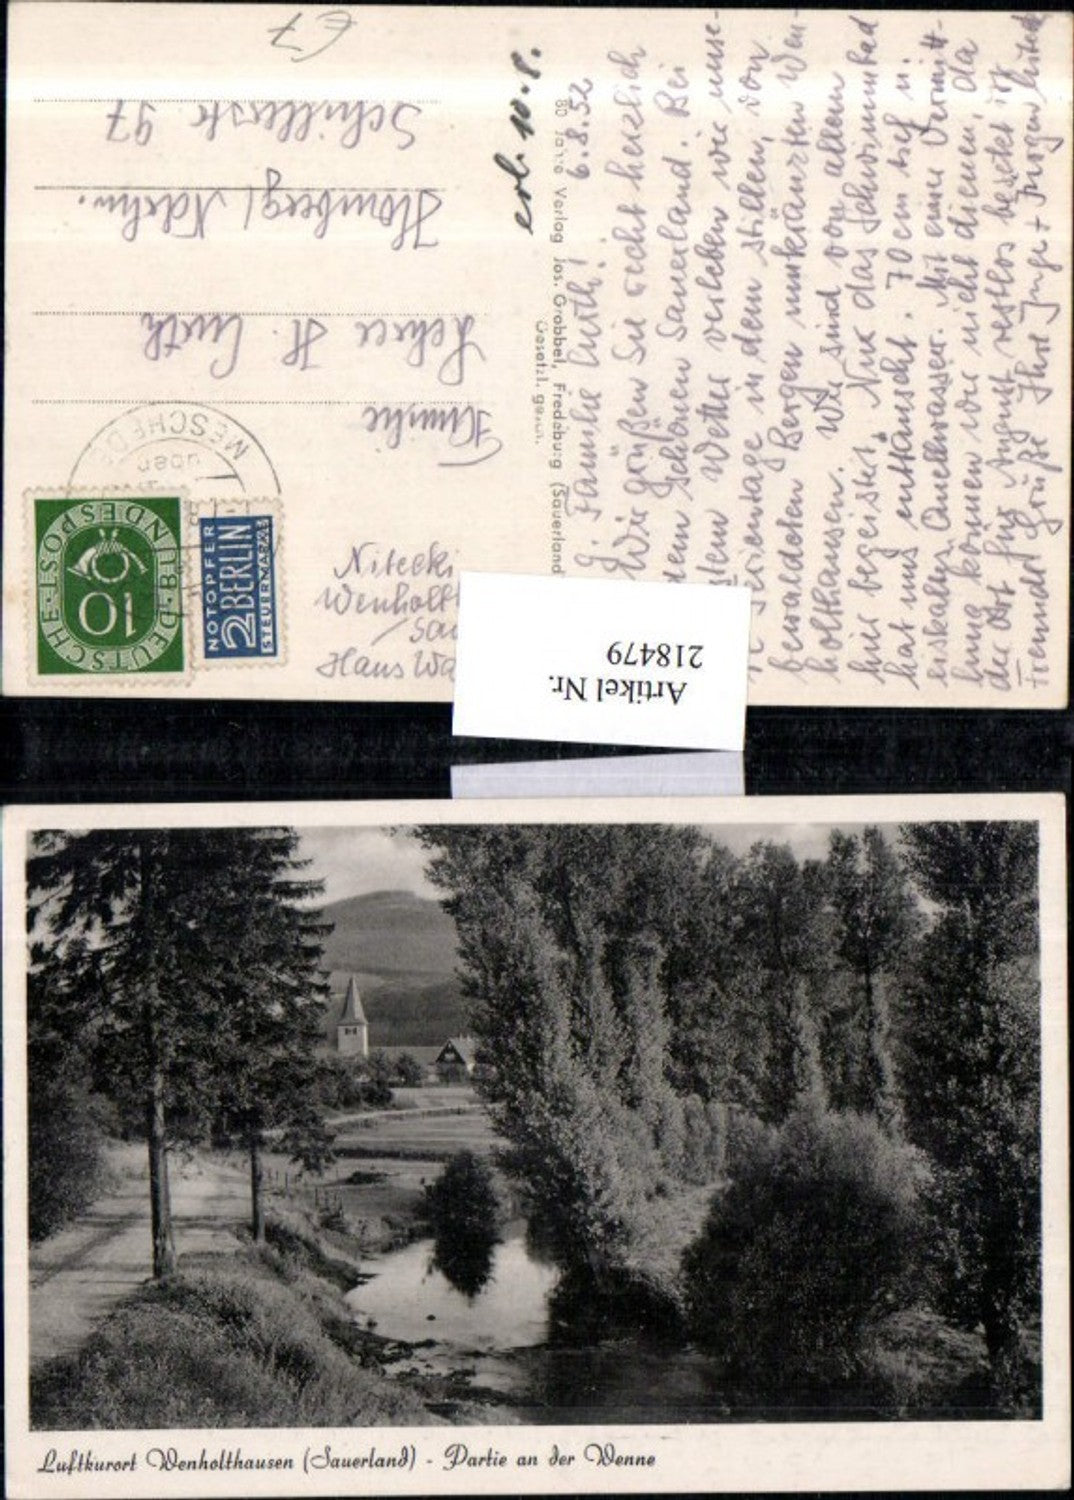 £7
Familie
Lehrer H. Curth
Homberg/Ndrrh.
Schillerstr 97
MESCHEDE
über
10
DEUTSCHE·BUNDESPOST
NOTOPFER
2 BERLIN
STEUERMARKE
Nitecki
Wenholt
Hans Wa
erh. 10.8.
Verlag Jos. Grobbel, Fredeburg (Sauerland
Gesetzl. gesch.
6.8.52
Familie Curth!
Wir grüßen Sie recht herzlich
dem schönen Sauerland. Bei
stem Wetter verleben wir unse-
re Ferientage in dem stillen, von
bewaldeten Bergen umkränzten Wen-
holthausen. Wir sind von allem
hier begeistert. Nur das Schwimmbad
hat uns enttäuscht. 70 cm tief u.
eiskaltes Quellwasser. Mit einer Vermitt-
lung können wir nicht dienen, da
der Ort für August restlos besetzt ist
Freundl. Grüße Ihre Inge + Jürgen Nitecki
Artikel Nr.
218479
Luftkurort Wenholthausen (Sauerland) - Partie an der Wenne